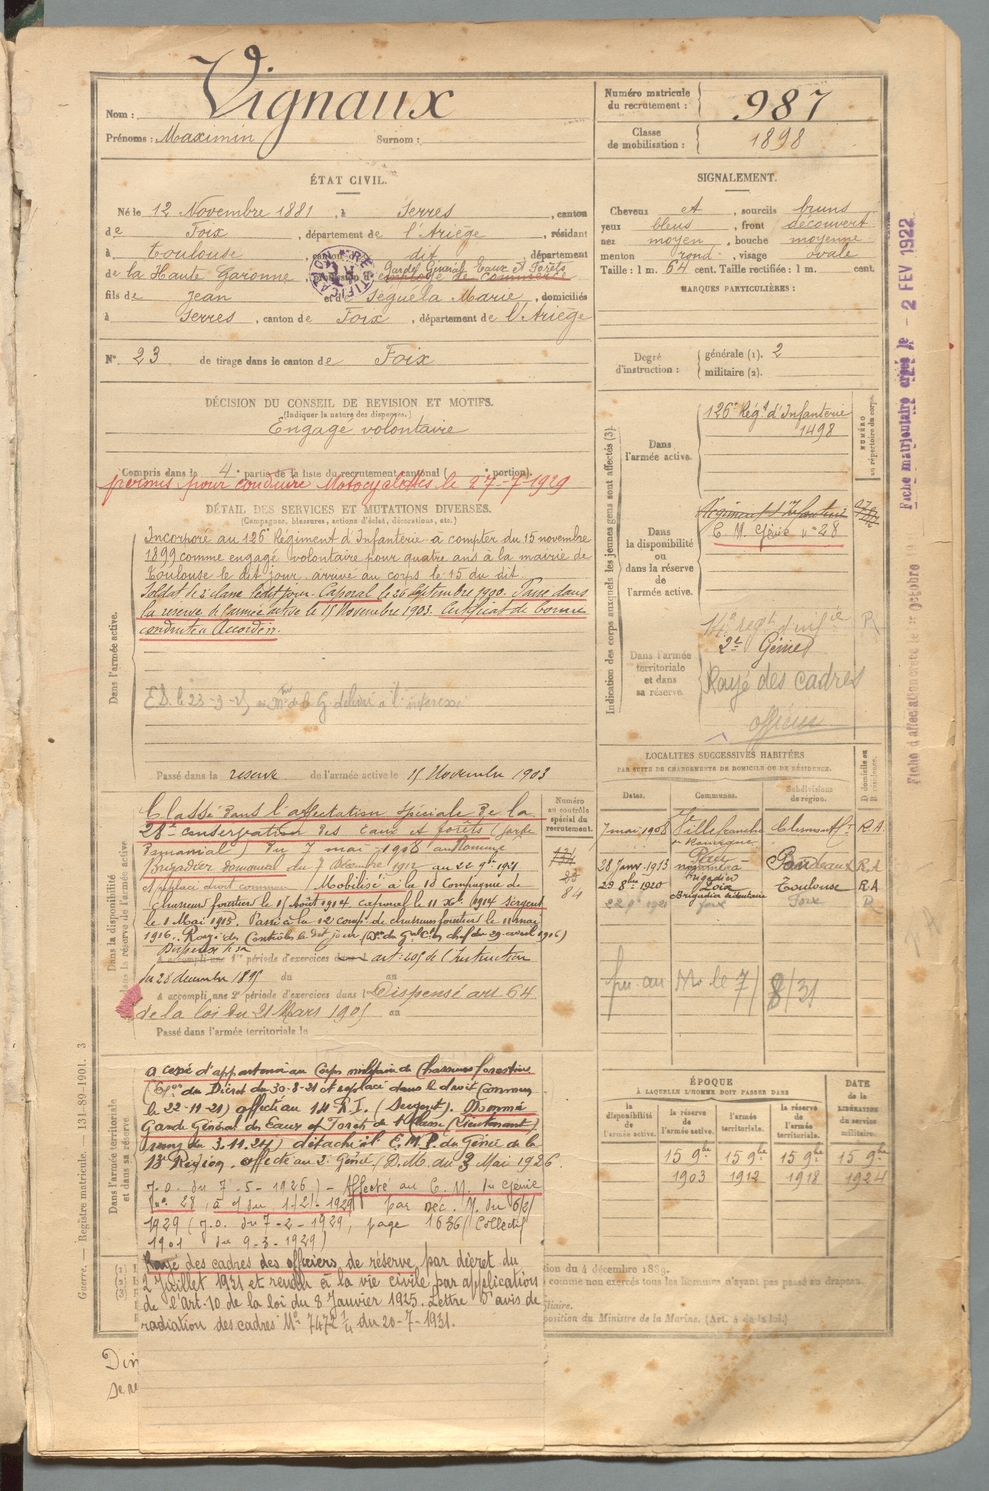 Nom : Vignaux
Prénoms : Maximin Surnom :
Numéro matricule
du recrutement : 987
Classe
de mobilisation : 1898
ÉTAT CIVIL.
Né le 12 Novembre 1881, à Serres, canton
de Foix, département de l'Ariège, résidant
à Toulouse, canton du dit, département
de la Haute Garonne, Garde Général Eaux et Forêts
fils de Jean et de Séguéla Marie, domiciliés
à Serres, canton de Foix, département de l'Ariège
N° 23 de tirage dans le canton de Foix
SIGNALEMENT.
Cheveux et, sourcils bruns
yeux bleus, front découvert
nez moyen, bouche moyenne
menton rond, visage ovale
Taille : 1 m. 64 cent. Taille rectifiée : 1 m. cent.
MARQUES PARTICULIÈRES :
Degré
d'instruction :
générale (1). 2
militaire (2).
DÉCISION DU CONSEIL DE REVISION ET MOTIFS.
(Indiquer la nature des dispenses.)
Engagé volontaire
Compris dans la 4e partie de la liste du recrutement cantonal ( portion).
permis pour conduire Motocyclettes le 27-7-1929
DÉTAIL DES SERVICES ET MUTATIONS DIVERSES.
(Campagnes, blessures, actions d'éclat, décorations, etc.)
Dans l'armée active.
Incorporé au 126e Régiment d'Infanterie à compter du 15 novembre
1899 comme engagé volontaire pour quatre ans à la mairie de
Toulouse le dit jour, arrivé au corps le 15 du dit.
Soldat de 2e classe le dit jour. Caporal le 26 septembre 1900. Passé dans
la réserve de l'armée active le 15 Novembre 1903. Certificat de bonne
conduite Accordé.
Passé dans la réserve de l'armée active le 15 Novembre 1903
Indication des corps auxquels les jeunes gens sont affectés (3).
NUMÉRO
au répertoire du corps.
Dans
l'armée active.
126e Régt d'Infanterie
1498
Dans
la disponibilité
ou
dans la réserve
de
l'armée active.
E. M. Génie n° 28
Dans l'armée
territoriale
et dans
sa réserve.
2e Génie
Rayé des cadres
officier
LOCALITÉS SUCCESSIVES HABITÉES
PAR SUITE DE CHANGEMENTS DE DOMICILE OU DE RÉSIDENCE.
Dates. Communes. Subdivisions
de région. D domicile ou
R résidence.
7 mai 1908 Villefranche de Rouergue R A
28 Janv. 1913 Bordeaux R A
29 8bre 1920 Foix Toulouse R A
Foix
Dans la disponibilité
et dans la réserve de l'armée active.
Numéro
au contrôle
spécial du
recrutement.
84
Classé dans l'affectation spéciale de la
28e conservation des Eaux et forêts
domanial) du 7 mai 1908
Brigadier domanial du 7 Décembre 1912 au 22 9bre 1921
Replacé droit commun / Mobilisé à la 1e Compagnie de
chasseurs forestiers le 1er Août 1914 caporal le 11 Xbre 1914 Sergent
le 1 Mai 1915. Passé à la 12 compie de chasseurs forestiers le 11 mai
1916. Rayé des Contrôles le dit jour
A accompli une 1re période d'exercices dans art: 209 de l'instruction
du 28 decembre 1895 du au
A accompli une 2e période d'exercices dans Dispensé art 64
de la loi du 21 Mars 1905 au
Passé dans l'armée territoriale le
Dans l'armée territoriale
et dans sa réserve
a cessé d'appartenir au Corps militaire de Chasseurs forestiers
du Décret du 30-8-21 et replacé dans le droit Commun
le 22-11-21) affecté au 14 R.I. (Sergent). Nommé
Garde Général des Eaux et Forêts de 1e Classe (Lieutenant)
rang du 3.11.24) détaché à l'E.M.P. du Génie de la
17e Région. affecté au 2e Génie (D.M. du 3 Mai 1926
J.O. du 7-5-1926) - Affecté au E. M. du Génie
n° 28, à d du 1/2/-1929 par Déc. M. du 6/2/
1929 (J.O. du 7-2-1929, page 1636/ Collectif
1901 du 9-3-1929)
Rayé des cadres des officiers de réserve par décret du
2 Juillet 1931 et rendu à la vie civile par application
de l'Art. 10 de la loi du 8 Janvier 1925. Lettre d'avis de
radiation des cadres N° 7472 1/4 du 20-7-1931.
ÉPOQUE
À LAQUELLE L'HOMME DOIT PASSER DANS
DATE
de la
LIBÉRATION
du service
militaire.
la
disponibilité
de
l'armée active.
la réserve
de
l'armée active.
l'armée
territoriale.
la réserve
de l'armée
territoriale.
15 9bre 15 9bre 15 9bre 15 9bre
1903 1912 1918 1924
tion du 4 décembre 1889.
comme non exercés tous les hommes n'ayant pas passé au drapeau.
position du Ministre de la Marine. (Art. 4 de la loi.)
Guerre. — Registre matricule. — 131-89-1901. 3
Fiche matriculaire créée le - 2 FEV 1922